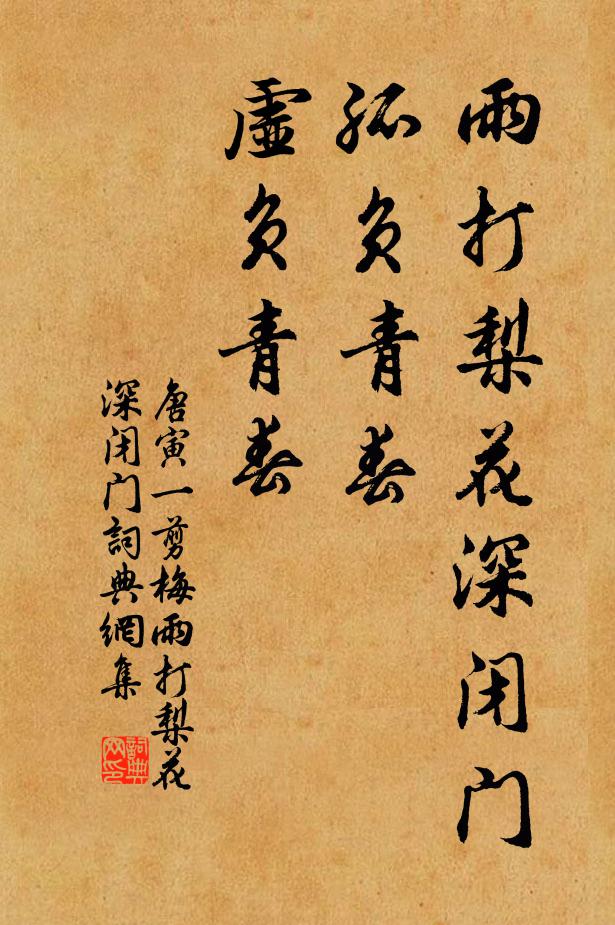 雨打梨花深闭门
孤负青春
虚负青春
唐寅一剪梅雨打梨花
深闭门詞典網集
詞典网印